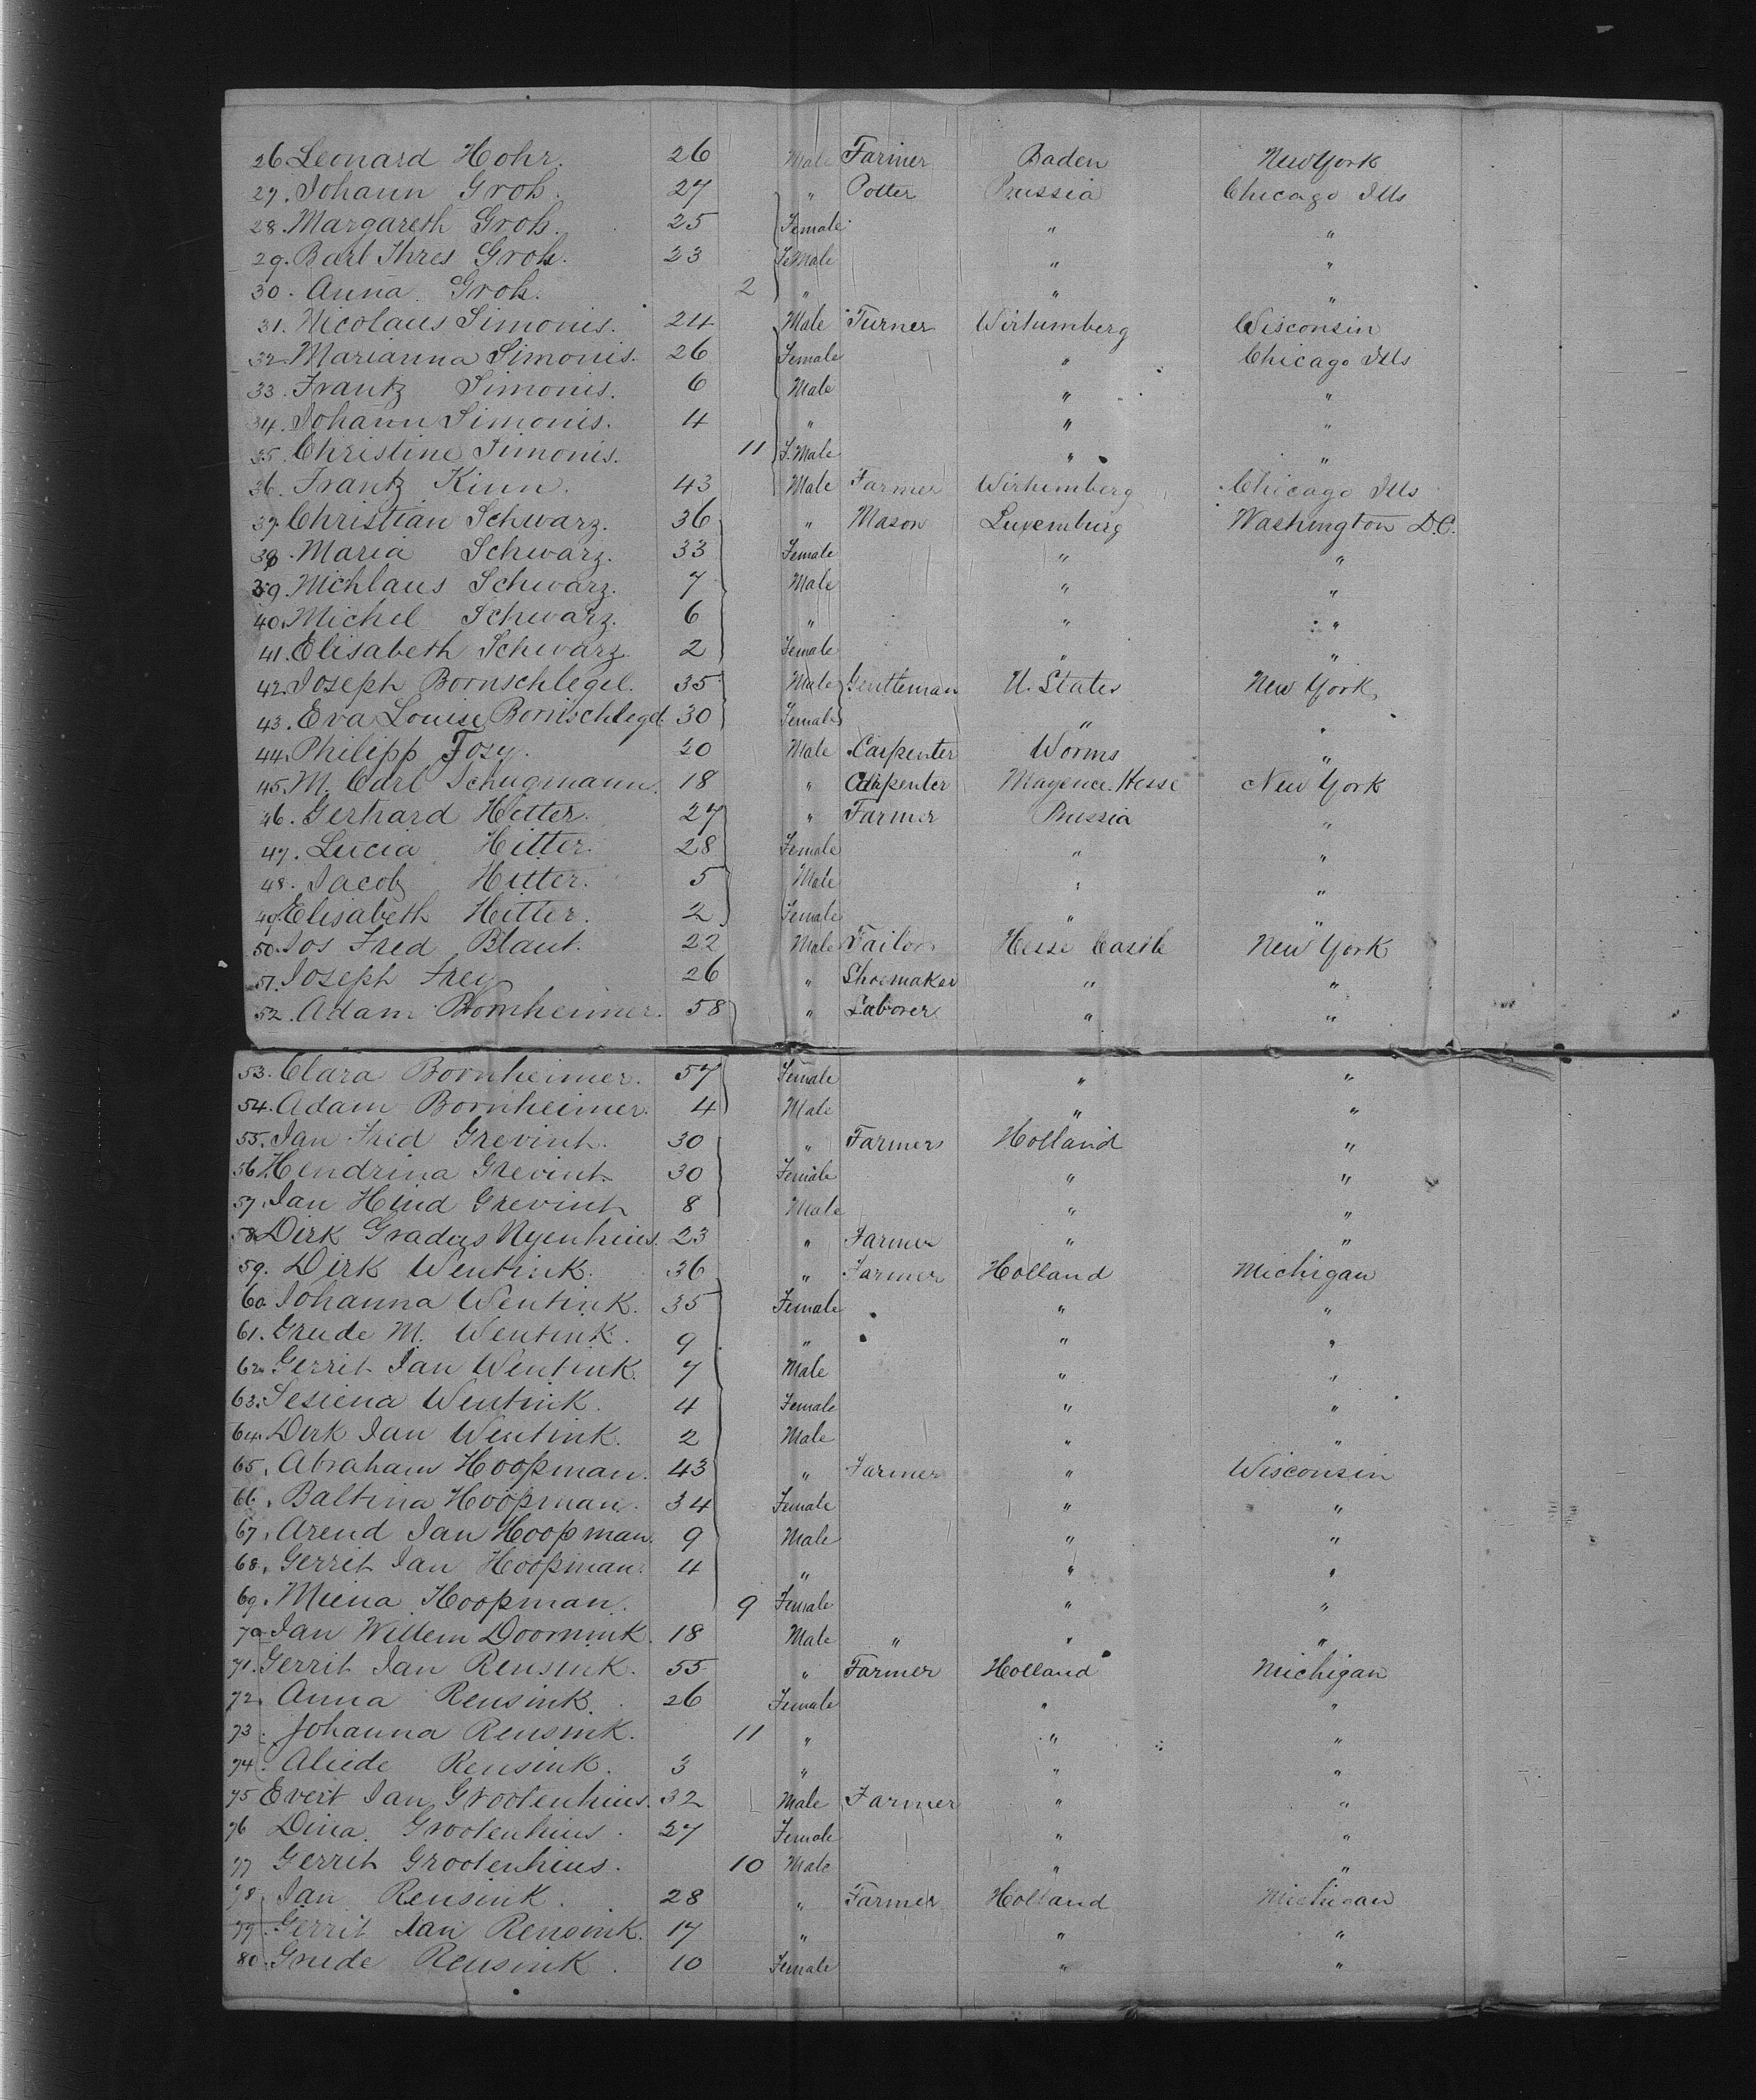 26 Leonard Hohr. 26 Male Farmer Baden New York
27. Johann Groh. 27 " Potter Prussia Chicago Ills
28. Margareth Groh. 25 Female " "
29. Barl Thres Groh. 23 Female " "
30. Anna Groh. 2 " " "
31. Nicolaus Simonis. 24 Male Turner Wirtumberg Wisconsin
32 Marianna Simonis. 26 Female " Chicago Ills
33. Frantz Simonis. 6 Male " "
34. Johann Simonis. 4 " " "
35. Christine Simonis. 11 F.Male " "
36. Frantz Kinn. 43 Male Farmer Wirtumberg Chicago Ills
37. Christian Schwarz. 36 " Mason Luxemburg Washington D.C.
38. Maria Schwarz. 33 Female " "
39. Nichlaus Schwarz. 7 Male " "
40. Michel Schwarz. 6 " " "
41. Elisabeth Schwarz 2 Female " "
42. Joseph Bornschlegel. 35 Male Gentleman U. States New York
43. Eva Louise Bornschlegel 30 Female " "
44. Philipp Fosy. 20 Male Carpenter Worms "
45. M. Carl Schugmann. 18 " Carpenter Mayence. Hesse New York
46. Gerhard Hitter. 27 " Farmer Prussia "
47. Lucia Hitter. 28 Female " "
48. Jacob Hitter. 5 Male " "
49. Elisabeth Hitter. 2 Female " "
50. Jos Fred Blaut. 22 Male Tailor Hesse Castle New York
51. Joseph Frey 26 " Shoemaker " "
52. Adam Bornheimer. 58 " Laborer " "
53. Clara Bornheimer. 57 Female " "
54. Adam Bornheimer. 4 Male " "
55. Jan Fred Grevink. 30 " Farmer Holland "
56. Hendrina Grevink 30 Female " "
57. Jan Hind Grevink 8 Male " "
58. Dirk Gradus Nyenhuis. 23 " Farmer " "
59. Dirk Wentink. 36 " Farmer Holland Michigan
60. Johanna Wentink. 35 Female " "
61. Grude M. Wentink. 9 " " "
62. Gerrit Jan Wentink. 7 Male " "
63. Sesiena Wentink. 4 Female " "
64. Derk Jan Wentink. 2 Male " "
65. Abraham Hoopman. 43 " Farmer " Wisconsin
66. Baltina Hoopman. 34 Female " "
67. Arend Jan Hoopman. 9 Male " "
68. Gerrit Jan Hoopman. 4 " " "
69. Miena Hoopman. 9 Female " "
70 Jan Willem Doornink. 18 Male " " "
71. Gerrit Jan Rensink. 55 " Farmer Holland Michigan
72. Anna Rensink. 26 Female " "
73. Johanna Rensink. 11 " " "
74. Aliede Rensink. 3 " " "
75 Evert Jan Grootenhuis. 32 Male Farmer " "
76 Dina Grootenhuis. 27 Female " "
77 Gerrit Grootenhuis. 10 Male " "
78. Jan Rensink. 28 " Farmer Holland Michigan
79. Gerrit Jan Rensink. 17 " " "
80. Grude Rensink. 10 Female " "